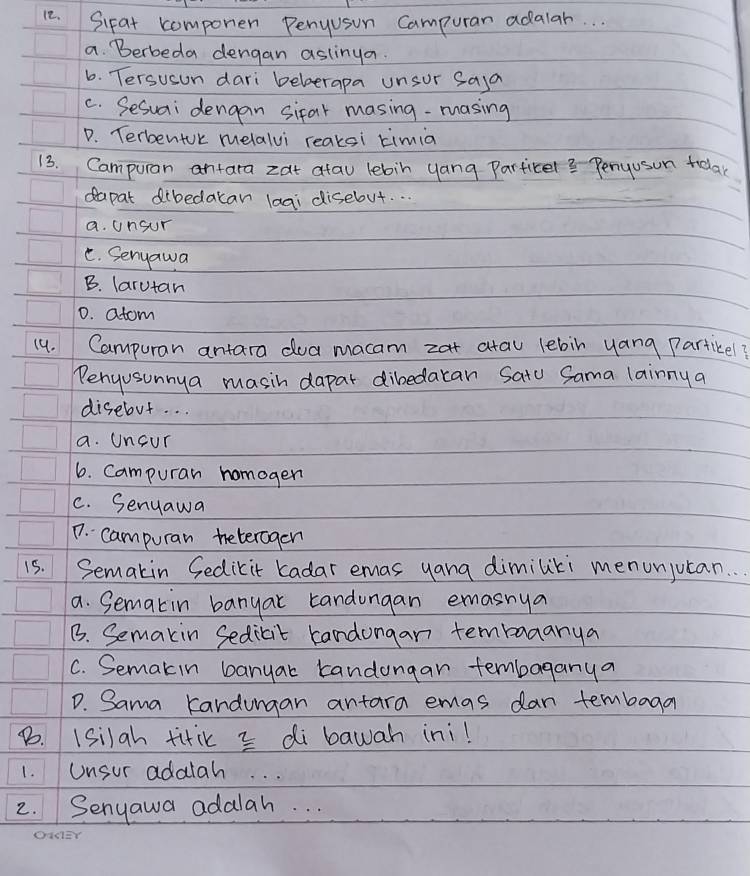 12. Sifat komponen Penyusun Campuran adalah...
a. Berbeda dengan aslinya.
b. Tersusun dari beberapa unsur saja
c. Sesuai dengan sifat masing-masing
D. Terbentuk melalui reaksi kimia
13. Campuran antara zat atau lebih yang Partikel² Penyusun tidak
dapat dibedakan lagi disebut...
a. unsur
c. Senyawa
B. larutan
D. atom
14. Campuran antara dua macam zat atau lebih yang Partikel²
Penyusunnya masih dapat dibedakan satu sama lainnya
disebut...
a. Unsur
b. campuran homogen
c. Senyawa
D. campuran heterogen
15. Semakin Sedikit kadar emas yang dimiliki menunjukan...
a. Semakin banyak kandungan emasnya
B. Semakin sedikit kandungan tembaganya
C. Semakin banyak kandungan tembaganya
D. Sama kandungan antara emas dan tembaga
B. Isilah titik ² di bawah ini!
1. Unsur adalah ...
2. Senyawa adalah ...
OKEY